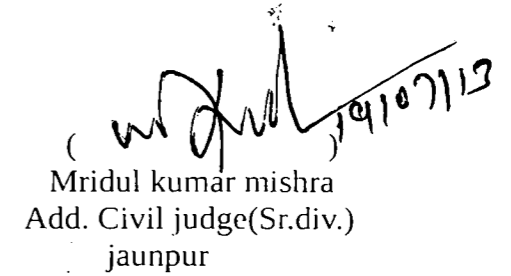 ( 19/07/13
)
Mridul kumar mishra
Add. Civil judge(Sr.div.)
jaunpur